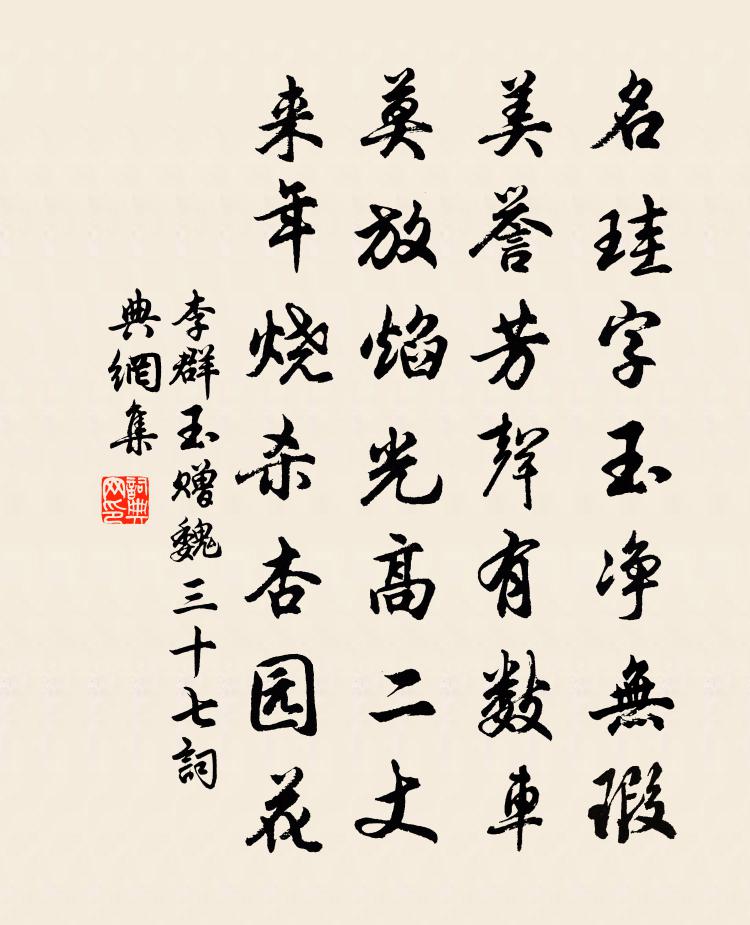 名珪字玉净無瑕
美誉芳聲有數車
莫放焰光高二丈
来年烧杀杏园花
李群玉赠魏三十七詞
典網集
詞典网印